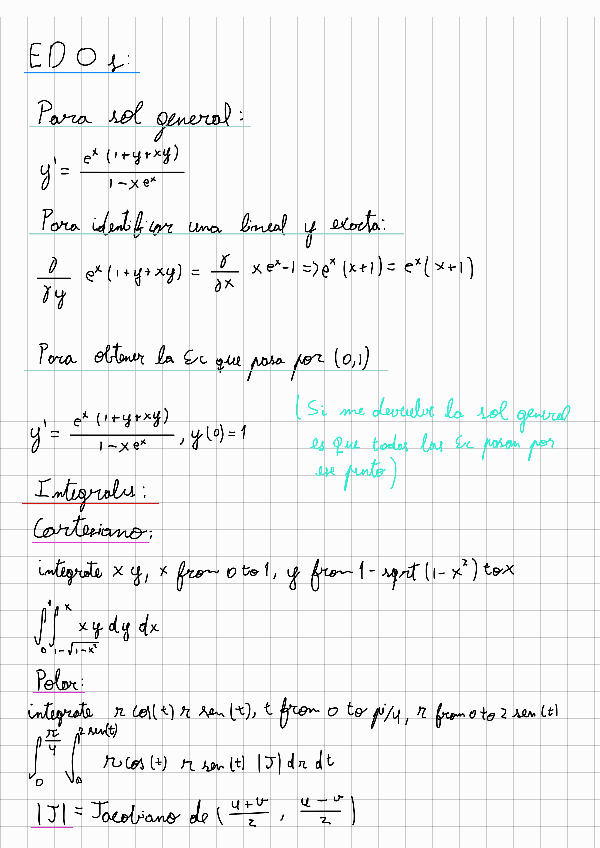 EDOs:
Para sol general:
y' = e^x (1+y+xy) / (1-xe^x)
Para identificar una lineal y exacta:
∂/∂y e^x (1+y+xy) = ∂/∂x xe^x-1 => e^x (x+1) = e^x (x+1)
Para obtener la Ec que pasa por (0,1)
y' = e^x (1+y+xy) / (1-xe^x), y(0)=1
(Si me devuelve la sol general
es que todas las Ec pasan por
ese punto)
Integrales:
Cartesiano:
integrate xy, x from 0 to 1, y from 1-sqrt(1-x²) to x
∫_0^1 ∫_{1-√(1-x²)}^x xy dy dx
Polar:
integrate r cos(t) r sen(t), t from 0 to pi/4, r from 0 to 2 sen(t)
∫_0^{π/4} ∫_0^{2 sen(t)} r cos(t) r sen(t) |J| dr dt
|J| = Jacobiano de ( (u+v)/2 , (u-v)/2 )